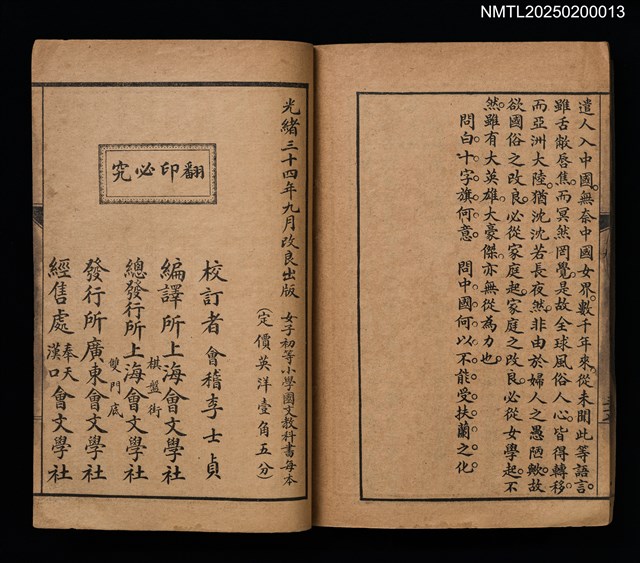 NMTL20250200013
遣人入中國。無奈中國女界。數千年來。從未聞此等語言。
雖舌敝唇焦。而冥然罔覺。是故全球風俗人心。皆得轉移。
而亞洲大陸。猶沈沈若長夜。然非由於婦人之愚陋歟。故
欲國俗之改良。必從家庭起。家庭之改良。必從女學起。不
然。雖有大英雄大豪傑。亦無從為力也。
問白十字旗何意。 問中國何以不能受扶蘭之化。
光緒三十四年九月改良出版
女子初等小學國文教科書每本
(定價英洋壹角五分)
翻印必究
校訂者 會稽李士貞
編譯所 上海棋盤街會文學社
總發行所 上海會文學社
發行所 廣東雙門底會文學社
經售處 奉天漢口會文學社